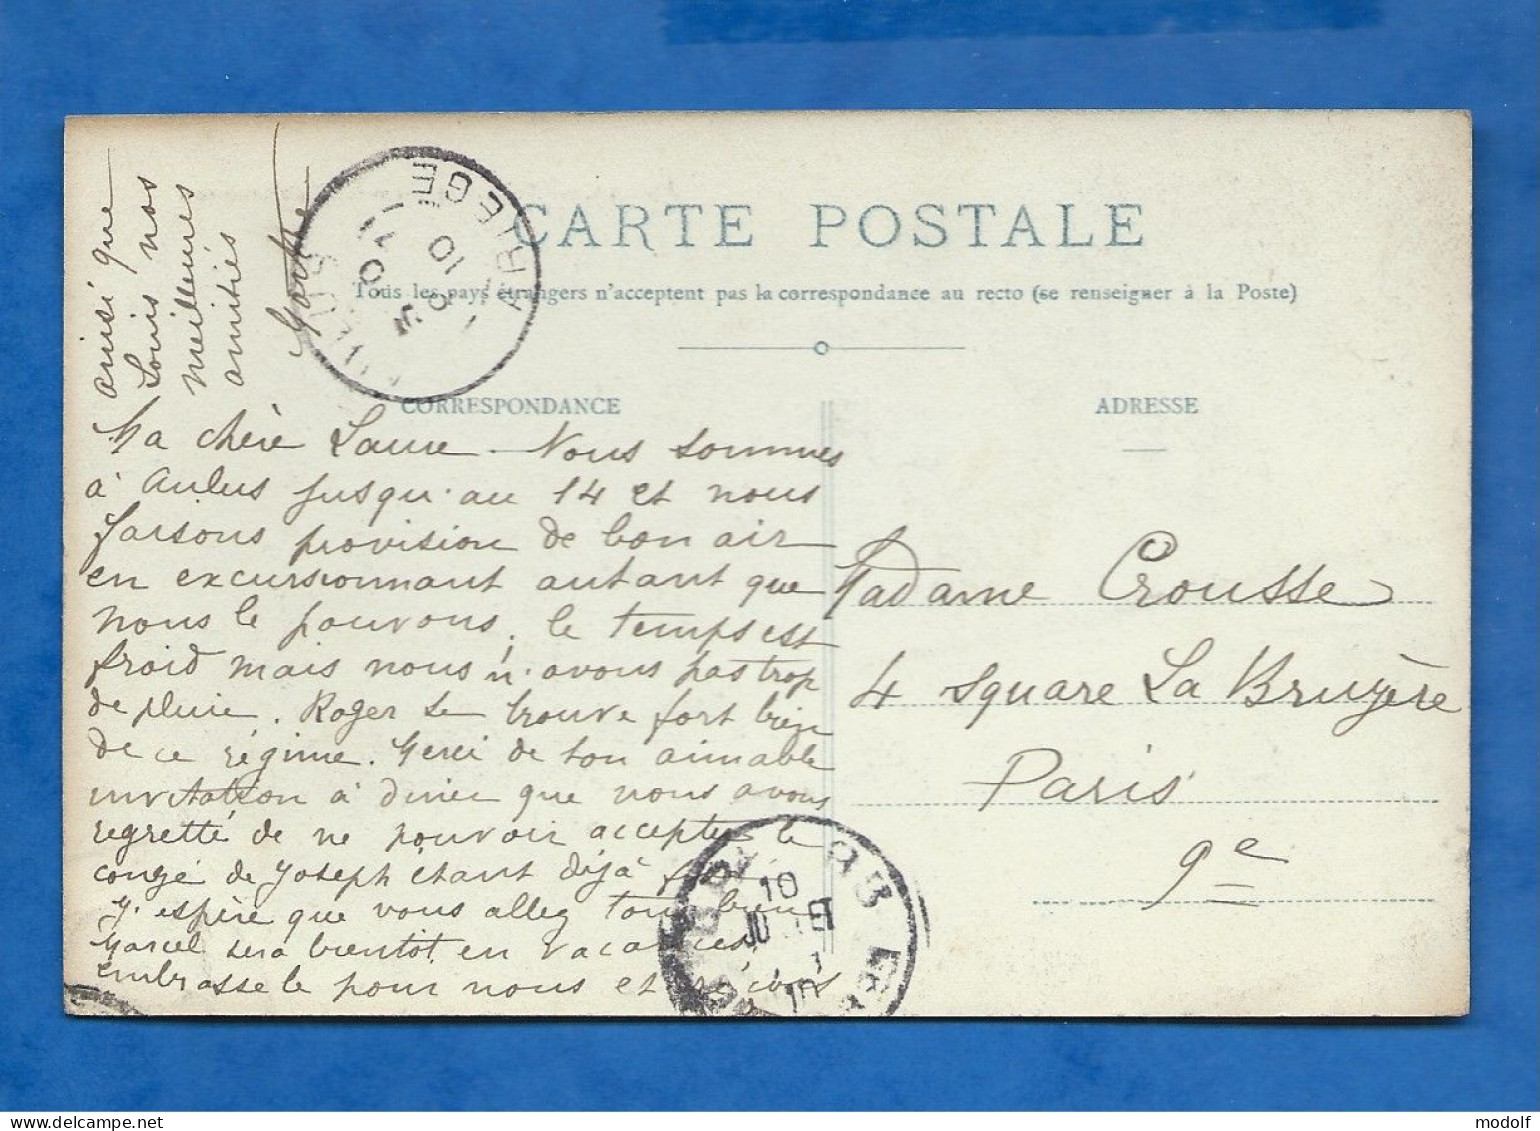 CARTE POSTALE
Tous les pays étrangers n'acceptent pas la correspondance au recto (se renseigner à la Poste)
CORRESPONDANCE
Ma chère Laure. Nous sommes
à Aulus jusqu'au 14 et nous
faisons provision de bon air
en excursionnant autant que
nous le pouvons, le temps est
froid mais nous n'avons pas trop
de pluie. Roger se trouve fort bien
de ce régime. Merci de ton aimable
invitation à diner que nous avons
regretté de ne pouvoir accepter le
congé de Joseph étant déjà
J'espère que vous allez tous bien
Marcel sera bientôt en vacances,
embrasse le pour nous et reçois
ainsi que
Louis nos
meilleures
amitiés
Marthe
ADRESSE
Madame Crousse
4 square La Bruyère
Paris
9e
AULUS
ARIEGE
10
JUILLET
10
modolf